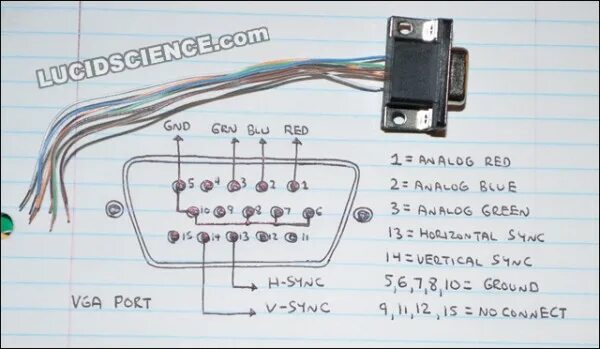 LUCIDSCIENCE.com
GND GRN BLU RED
5 4 3 2 1
10 9 8 7 6
15 14 13 12 11
H-SYNC
V-SYNC
VGA PORT
1 = ANALOG RED
2 = ANALOG BLUE
3 = ANALOG GREEN
13 = HORIZONTAL SYNC
14 = VERTICAL SYNC
5,6,7,8,10 = GROUND
9,11,12,15 = NO CONNECT